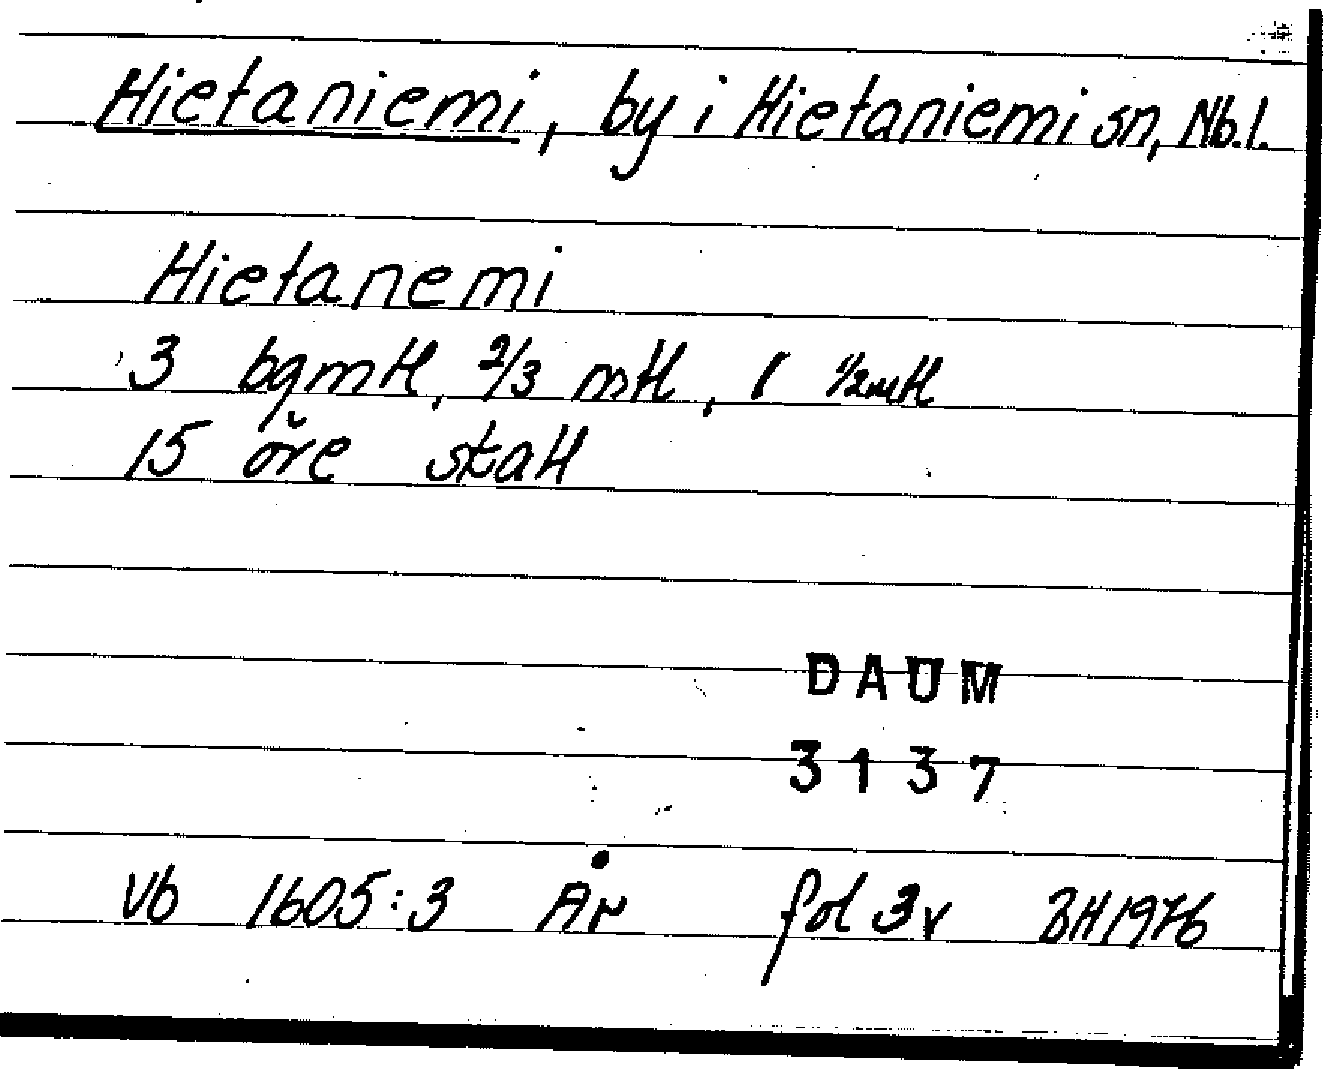 Hietaniemi, by i Hietaniemi sn, Nb.l.
Hietanemi
3 bgmtl, 2/3 mtl, 1 1/2 mtl
15 öre skatt
DAUM
3137
Vb 1605:3 År fol 3v BH 1976